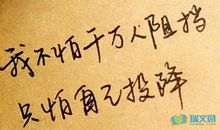 我不怕千万人阻挡
只怕自己投降
瑞文网